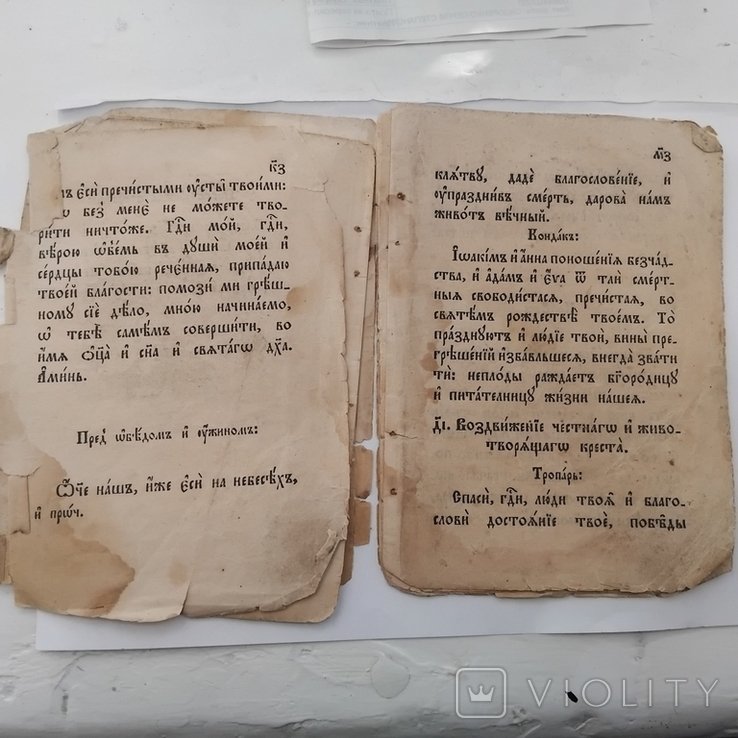 к҃з
мъ є҆сѝ пречи́стыми ѹ҆сты̀ твои́ми:
ѡ без̾ менє̀ не мо́жете тво-
ри́ти ничто́же. Гд҇и мо́й, гд҇и,
вѣ́рою ѡ҆бѣ́мь въ дꙋшѝ мое́й и҆
се́рдцы тобо́ю рече́нная, припа́даю
твое́й бла́гости: помозѝ ми грѣ́ш-
номꙋ сїѐ дѣ́ло, мно́ю начина́емо,
ѡ҆ тебѣ̀ само́мъ соверши́ти, во
и҆́мя ѻ҆ц҃а̀ и҆ сн҃а и҆ свята́гѡ дх҃а.
А҆ми́нь.
Пред̾ ѡ҆бѣ́домъ и҆ ѹ҆́жиномъ:
Ѻ҆́ч҃е на́шъ, и҆́же є҆сѝ на небесѣ́хъ,
и҆ прѡ́ч.
м҃з
кля́твꙋ, дадѐ благослове́нїе, и҆
ѹ҆праздни́въ сме́рть, дарова̀ на́мъ
живо́тъ вѣ́чный.
Конда́къ:
І҆ѡаки́мъ и҆ а҆́нна поноше́нїя безча́д-
ства, и҆ а҆да́мъ и҆ є҆́ѵа ѿ тлѝ сме́рт-
ныя свободи́стася, пречи́стая, во
свято́мъ рождествѣ̀ твое́мъ. То̀
пра́зднꙋютъ и҆ лю́дїе твоѝ, вины̀ пре-
грѣше́нїй и҆зба́вльшеся, внегда̀ зва́ти
тѝ: непло́ды ражда́етъ бг҃оро́дицꙋ
и҆ пита́тельницꙋ жи́зни на́шея.
д҃і. Воздви́женїе честна́гѡ и҆ живо-
творя́щагѡ креста̀.
Тропа́рь:
Спасѝ, гд҇и, лю́ди твоя̑ и҆ благо-
словѝ достоя́нїе твоѐ, побѣ́ды
VIOLITY